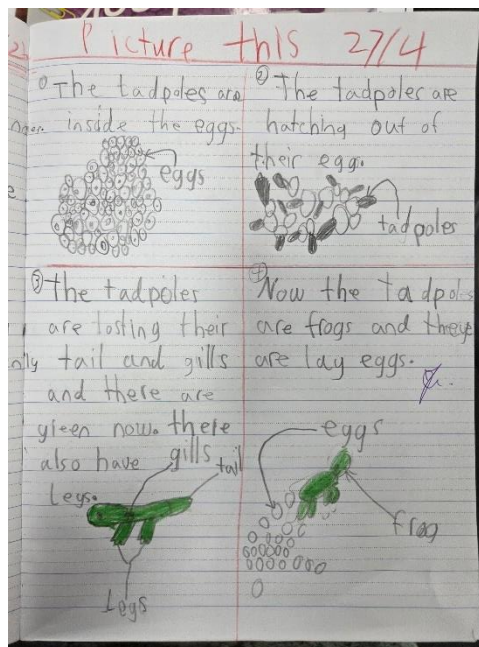 Picture this 27/4
① The tadpoles are
inside the eggs.
eggs
② The tadpoles are
hatching out of
their egg.
tadpoles
③ The tadpoles
are losting their
tail and gills
and there are
green now. there
also have
legs.
gills
tail
Legs
④ Now the tadpoles
are frogs and
are lay eggs.
eggs
frog